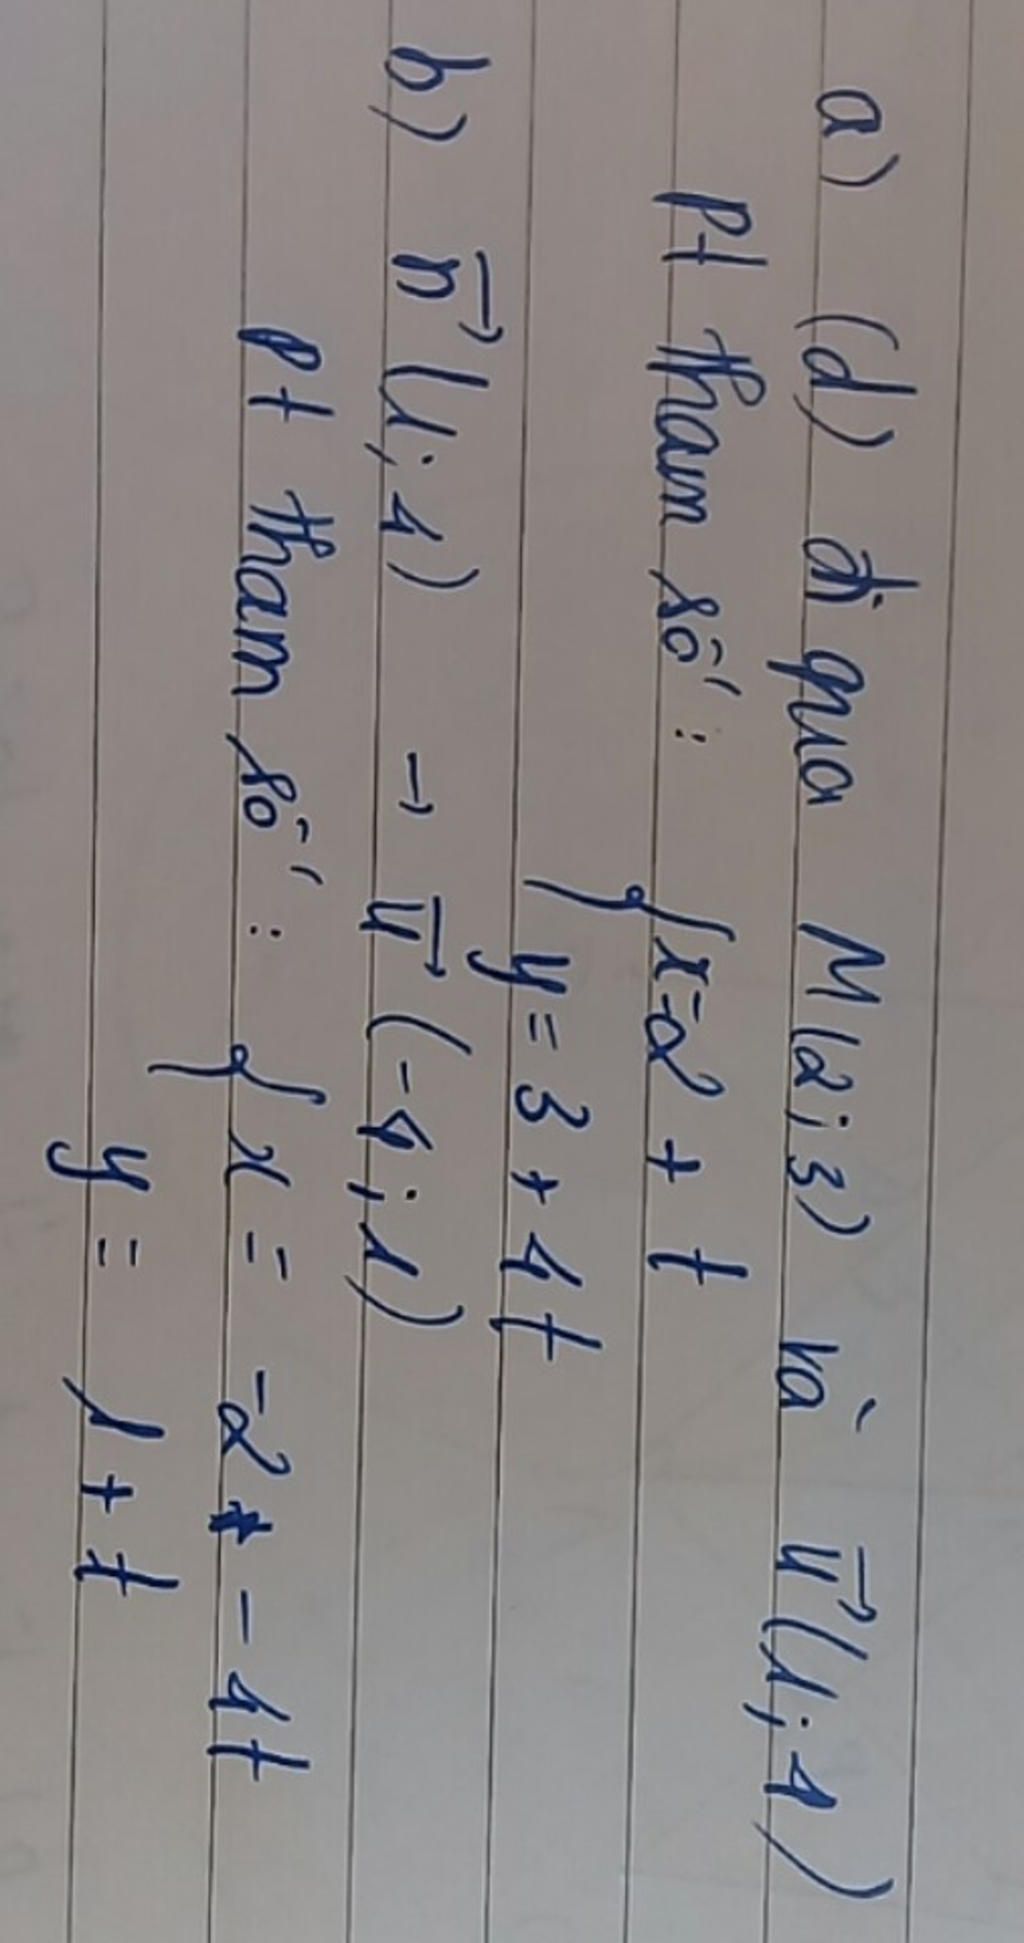 a) (d) đi qua M(2;3) và u→(1;4)
pt tham số: { x=2 + t
y = 3 + 4t
b) n→(1;4) → u→(-4;1)
pt tham số: { x = -2 - 4t
y = 1 + t